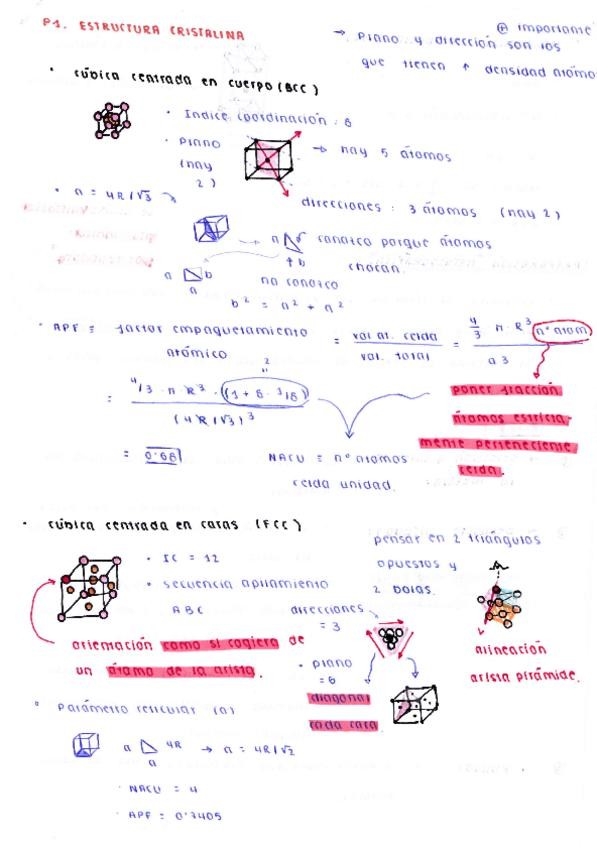 P1. ESTRUCTURA CRISTALINA
importante
→ Plano y dirección son los
que tienen ↑ densidad atómo
• cúbica centrada en cuerpo (BCC)
• Indice coordinación: 8
• Plano
(hay
2)
→ hay 5 átomos
direcciones: 3 átomos (hay 2)
• a = 4R/√3
a
b
conozco porque átomos
chocan.
a
b
a
no conozco
b² = a² + a²
• APF = factor empaquetamiento
atómico
= vol at. celda / vol. total = 4/3 π · R³ nº atom / a3
= 4/3 · π R³ · (1 + 8 · 1/8) / (4R/√3)³
2
= 0'68
NACU = nº átomos
celda unidad.
poner fracción
átomos estricta-
mente perteneciente
celda.
• cúbica centrada en caras (FCC)
• IC = 12
• secuencia apilamiento
ABC
pensar en 2 triángulos
opuestos y
2 bolas.
direcciones
= 3
orientación como si cogiera de
un átomo de la arista.
• plano
=6
diagonal
cada cara
alineación
arista pirámide.
• Parámetro reticular (a)
a
4R → a = 4R/√2
• NACU = 4
• APF = 0'7405